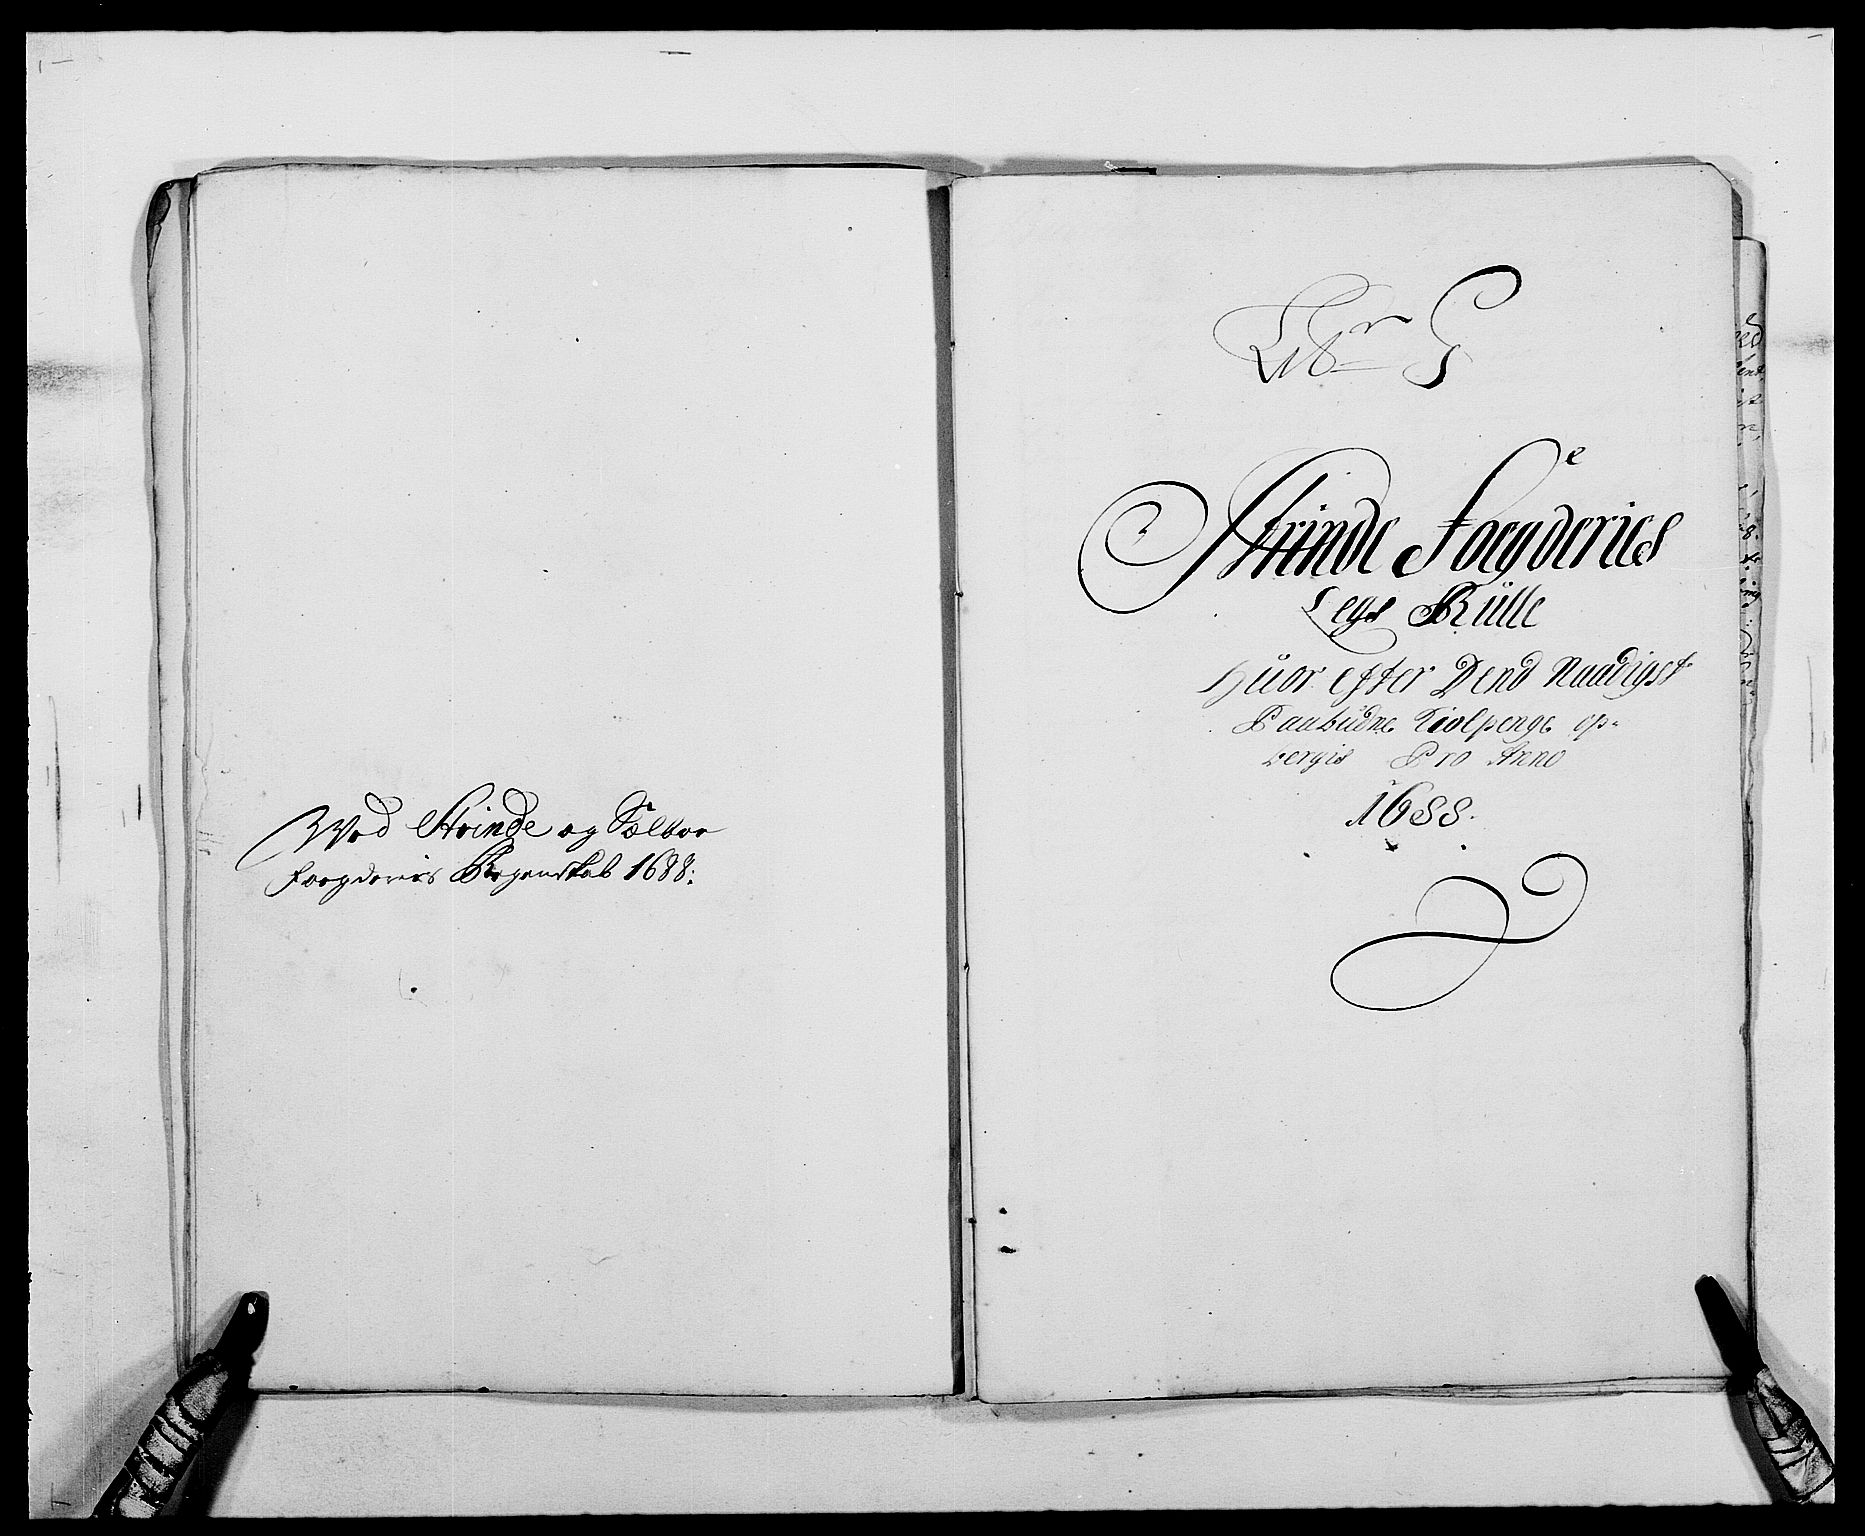 Wed Strinde og Sælboe
Foegderies Regenskab 1688:
Lbr G
Strinde Foegderies
Legs Rülle
Hüor efter Dend Naadigst
Paabüdne Kiolpenge op-
bergis Pro Anno
1688.